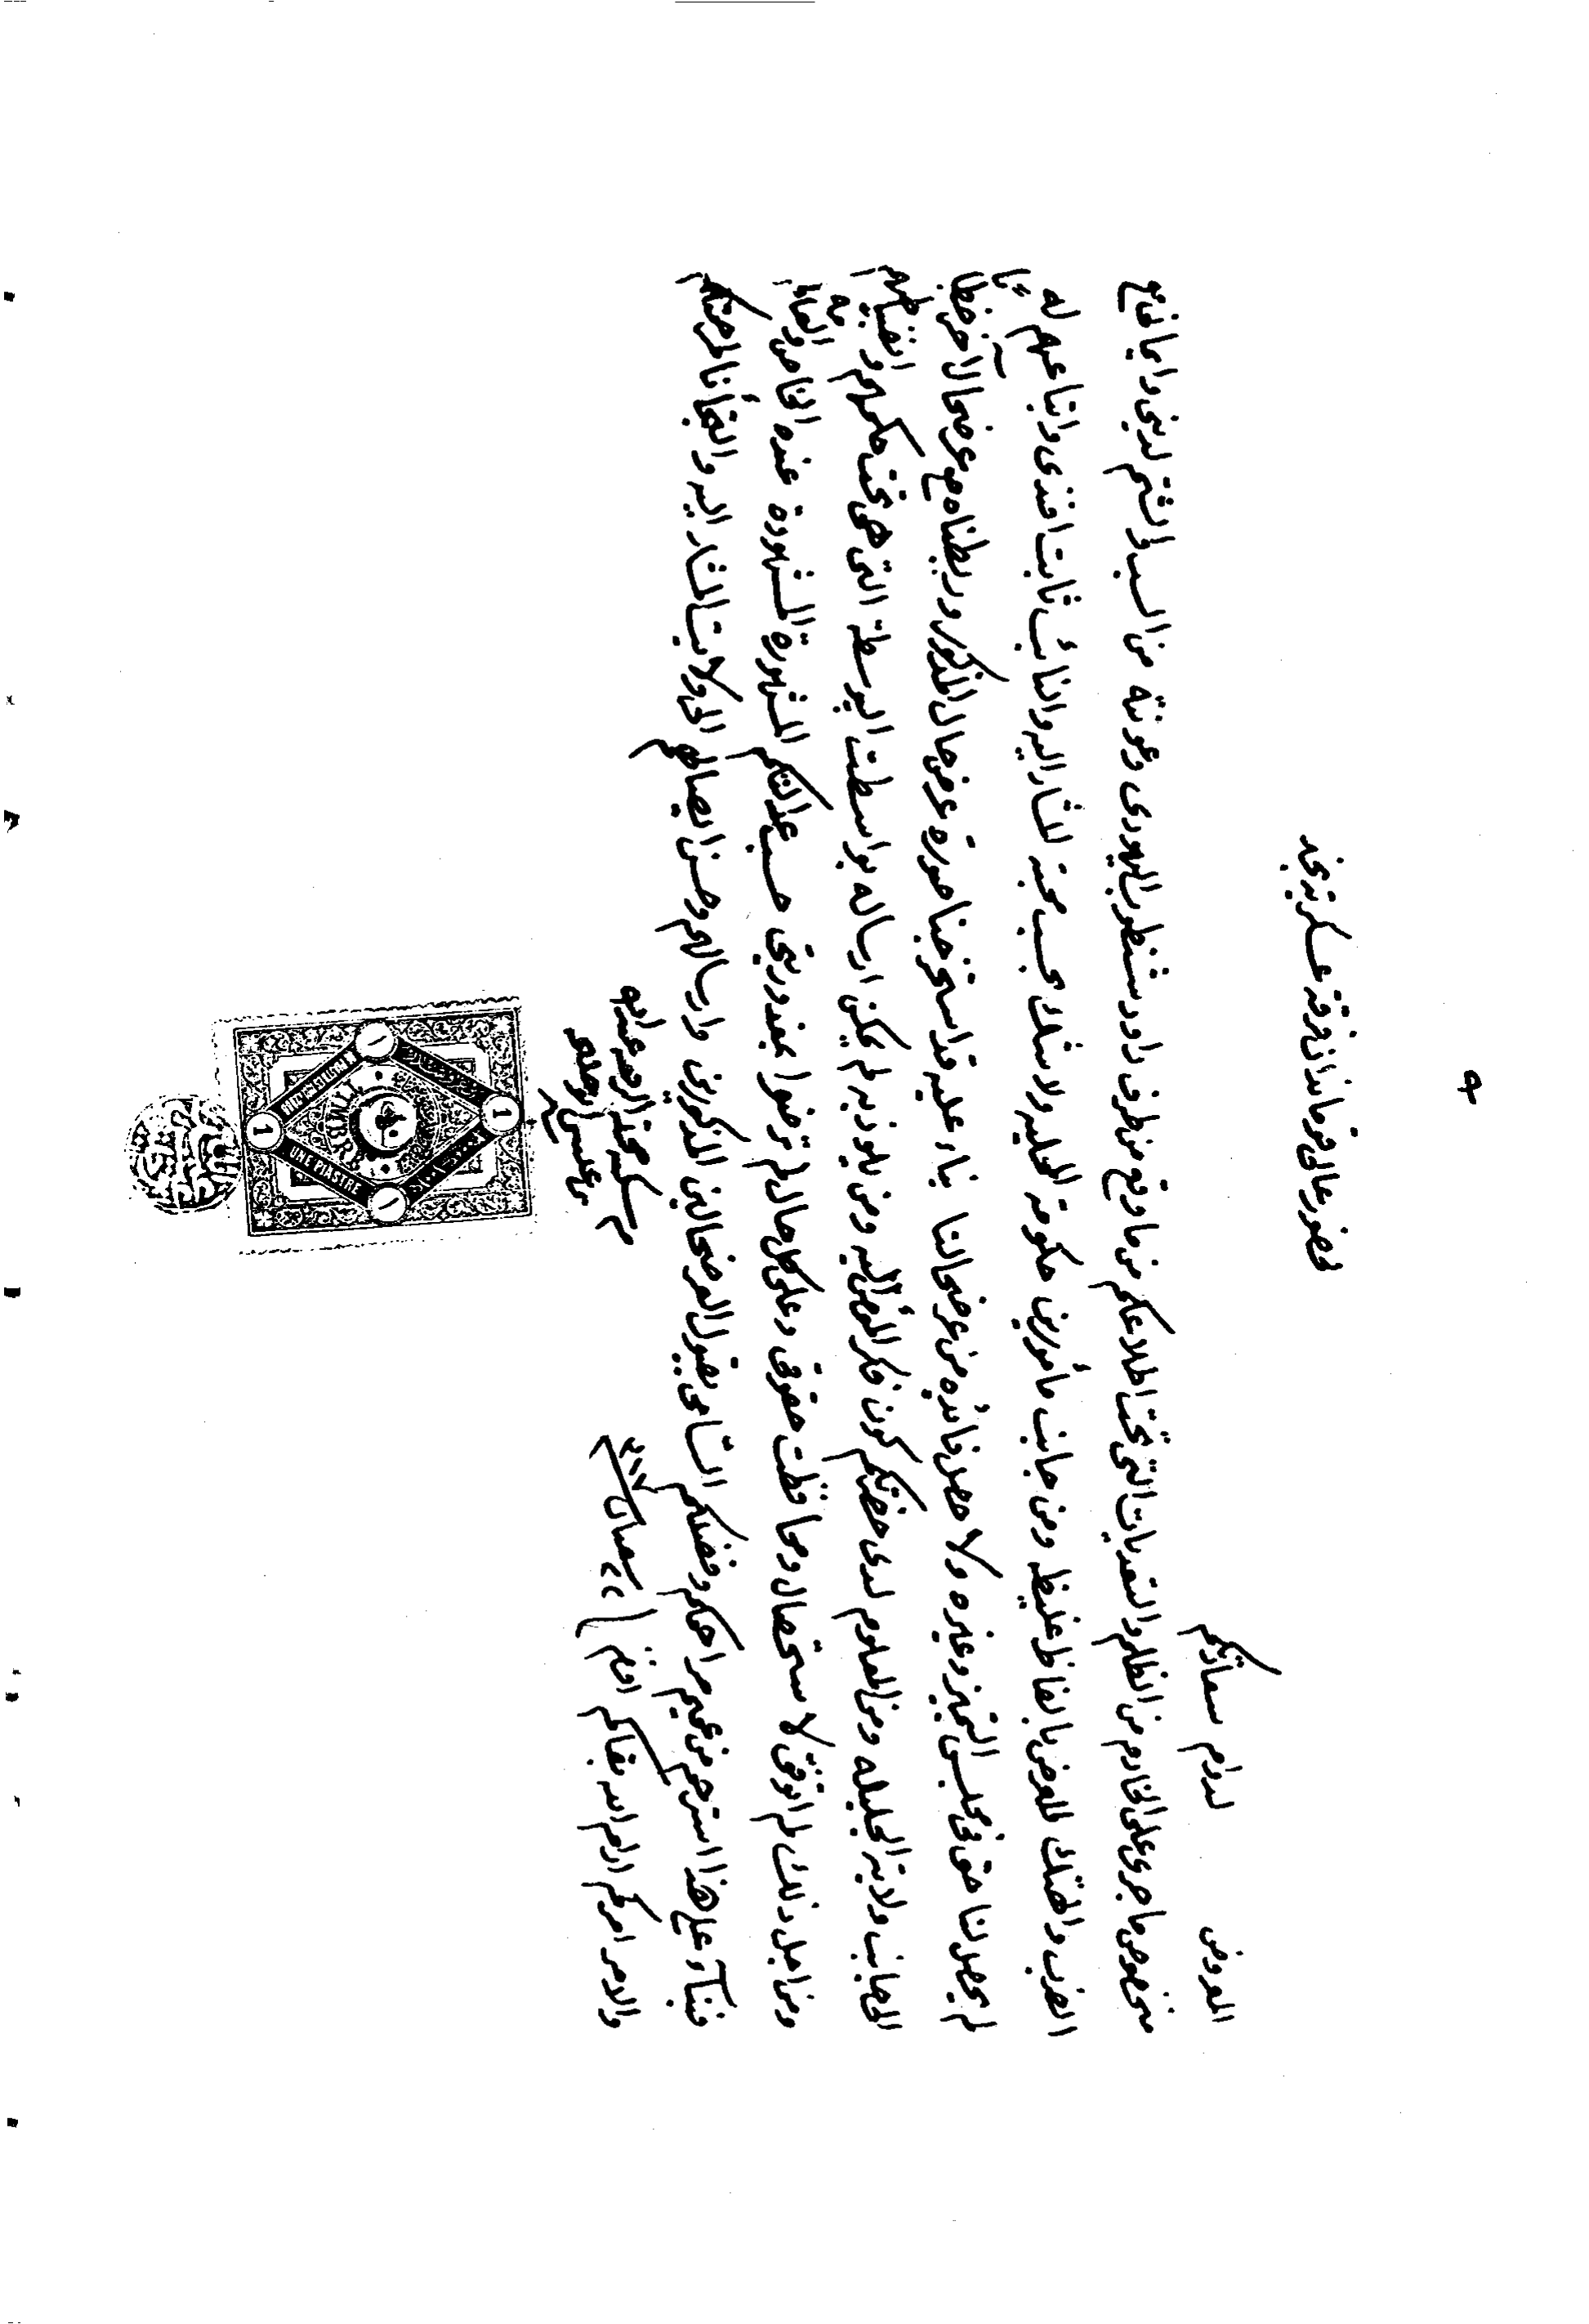 ٩
لحضور عالي قوماندان فرقة عسكرية نجد
المعروض لدوام سعادتكم
من خصوص ما جرى على الخادم من الظلم والتعديات التي تحت اطلاعكم من ما وقع من طرف داود شنطوب اليهودي وعونته من السب والشتم لديني وايماني مع
الضرب والهتك للعرض بالفاظ غليظه ومن جانب مأمورين حكومة المحليه ولا شك بحسب محبة المشار اليه والنائب ثابت افندي واتباعهم له
لم يحصل لنا حق في مجلس التميز وغيره ولا حصل فائده من عرضحالنا بناء عليه قد استخرجنا صورة عرضحال المذكور وربطناه مع عرضحال آخر خطابا
الى جانب ولاية الجليله ومن المعلوم لدى حضرتكم كون فكر المومى اليه ومن يلوذ به لم يمكن ارساله بواسطت البوسطة التي هي تحت حكمهم و انضباطهم
ومن اجل ذلك لم اتوفق لاستحصال ومحافظت حقوقي وعلى كل حال لم ترضوا بغدوريتي حسب عدالتكم المشهورة المشهودة عند الخاص والعام
فبناء على هذا استرحم من عميم مراحمكم وفضلكم السامي بقبول العرضحالين المذكورين وارسالهم وحسن ايصالهم الى ولايت المشار اليه والتجأنا لمرحمتكم
والامر امركم ادام الله بقاكم افندم في ٢٢ شعبان
محمد عبدالله
1
UNE PIASTRE